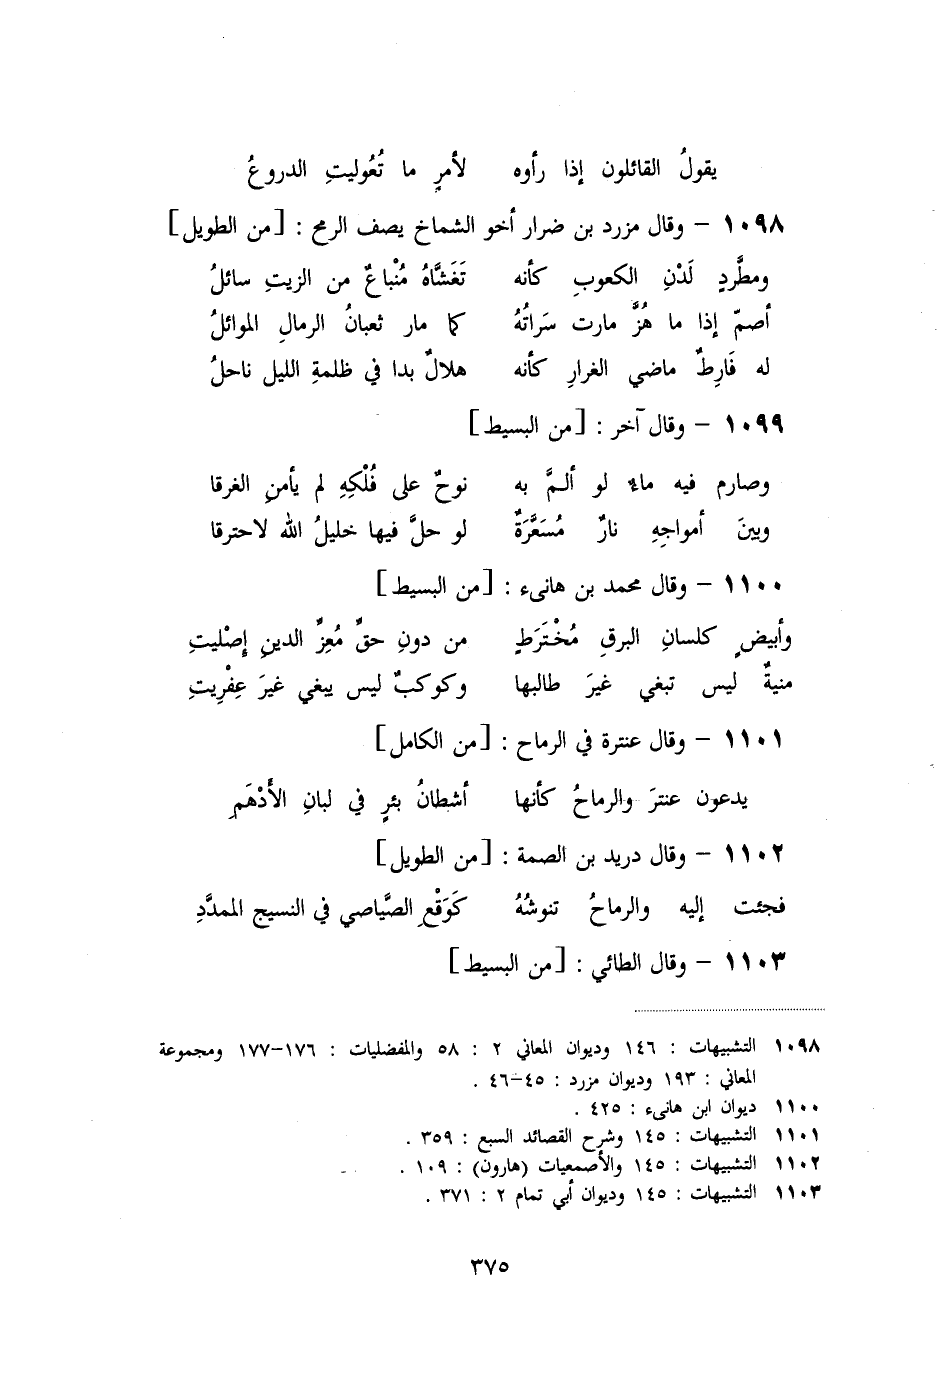 يقولُ القائلون إذا رأوه لأمرٍ ما تُعُوليتِ الدروعُ
١٠٩٨ – وقال مزرد بن ضرار أخو الشماخ يصف الرمح : [من الطويل]
ومطَّردٍ لَدْنِ الكعوبِ كأنه تَغَشَّاهُ مُنْباعٌ من الزيتِ سائلُ
أصمّ إذا ما هُزَّ مارت سَراتُهُ كما مار ثعبانُ الرمالِ الموائلُ
له فَارِطٌ ماضي الغرارِ كأنه هلالٌ بدا في ظلمةِ الليل ناحلُ
١٠٩٩ – وقال آخر : [من البسيط]
وصارم فيه ماء لو ألـمَّ به نوحٌ على فُلْكِهِ لم يأمنِ الغرقا
وبينَ أمواجهِ نارٌ مُسَعَّرَةٌ لو حلَّ فيها خليلُ الله لاحترقا
١١٠٠ – وقال محمد بن هانىء : [من البسيط]
وأبيضٍ كلسانِ البرقِ مُخْتَرَطٍ من دونِ حقٍّ مُعِزِّ الدينِ إصْليتِ
منيةٌ ليس تبغي غيرَ طالبها وكوكبٌ ليس يبغي غيرَ عِفْرِيتِ
١١٠١ – وقال عنترة في الرماح : [من الكامل]
يدعون عنترَ والرماحُ كأنها أشطانُ بئرٍ في لبانِ الأَدْهَمِ
١١٠٢ – وقال دريد بن الصمة : [من الطويل]
فجئت إليه والرماحُ تنوشُهُ كَوَقْعِ الصَّياصي في النسيج الممدَّدِ
١١٠٣ – وقال الطائي : [من البسيط]
١٠٩٨ التشبيهات : ١٤٦ وديوان المعاني ٢ : ٥٨ والمفضليات : ١٧٦–١٧٧ ومجموعة
المعاني : ١٩٣ وديوان مزرد : ٤٥–٤٦ .
١١٠٠ ديوان ابن هانىء : ٤٢٥ .
١١٠١ التشبيهات : ١٤٥ وشرح القصائد السبع : ٣٥٩ .
١١٠٢ التشبيهات : ١٤٥ والأصمعيات (هارون) : ١٠٩ .
١١٠٣ التشبيهات : ١٤٥ وديوان أبي تمام ٢ : ٣٧١ .
٣٧٥